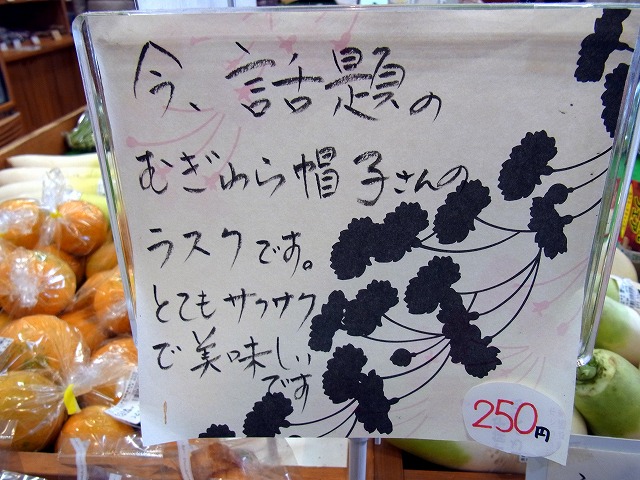 今、話題の
むぎわら帽子さんの
ラスクです。
とてもサクサク
で美味しい
です
250円